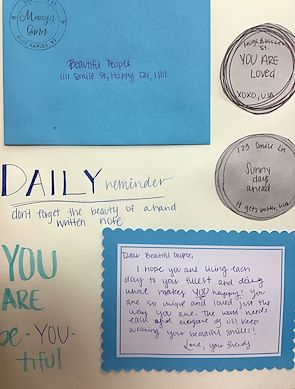 Macyn
Gunn
BLUE RAPIDS, KS
Beautiful People
1111 Smile St, Happy Day, 11111
Hugs & Kisses
St.
YOU ARE
Loved
XOXO, USA
DAILY reminder
don't forget the beauty of a hand
written note
123 Smile Ln
Sunny
day
ahead
It gets better, USA
YOU
ARE
be-YOU-
tiful
Dear Beautiful People,
I hope you are living each
day to your fullest and doing
what makes YOU happy! You
are so unique and loved just the
way you are. The world needs
each and everyone of us! Keep
wearing your beautiful smiles!
Love, your friends